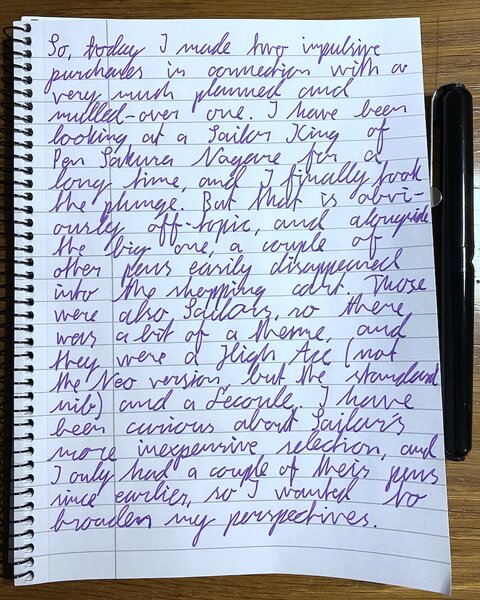 So, today I made two impulsive
purchases in connection with a
very much planned and
mulled-over one. I have been
looking at a Sailor King of
Pen Sakura Nagare for a
long time, and I finally took
the plunge. But that is obvi-
ously off-topic, and alongside
the big one, a couple of
other pens easily disappeared
into the shopping cart. Those
were also Sailors, so there
was a bit of a theme, and
they were a High Ace (not
the Neo version but the standard
nib) and a Lecoule. I have
been curious about Sailor's
more inexpensive selection, and
I only had a couple of their pens
since earlier, so I wanted to
broaden my perspectives.